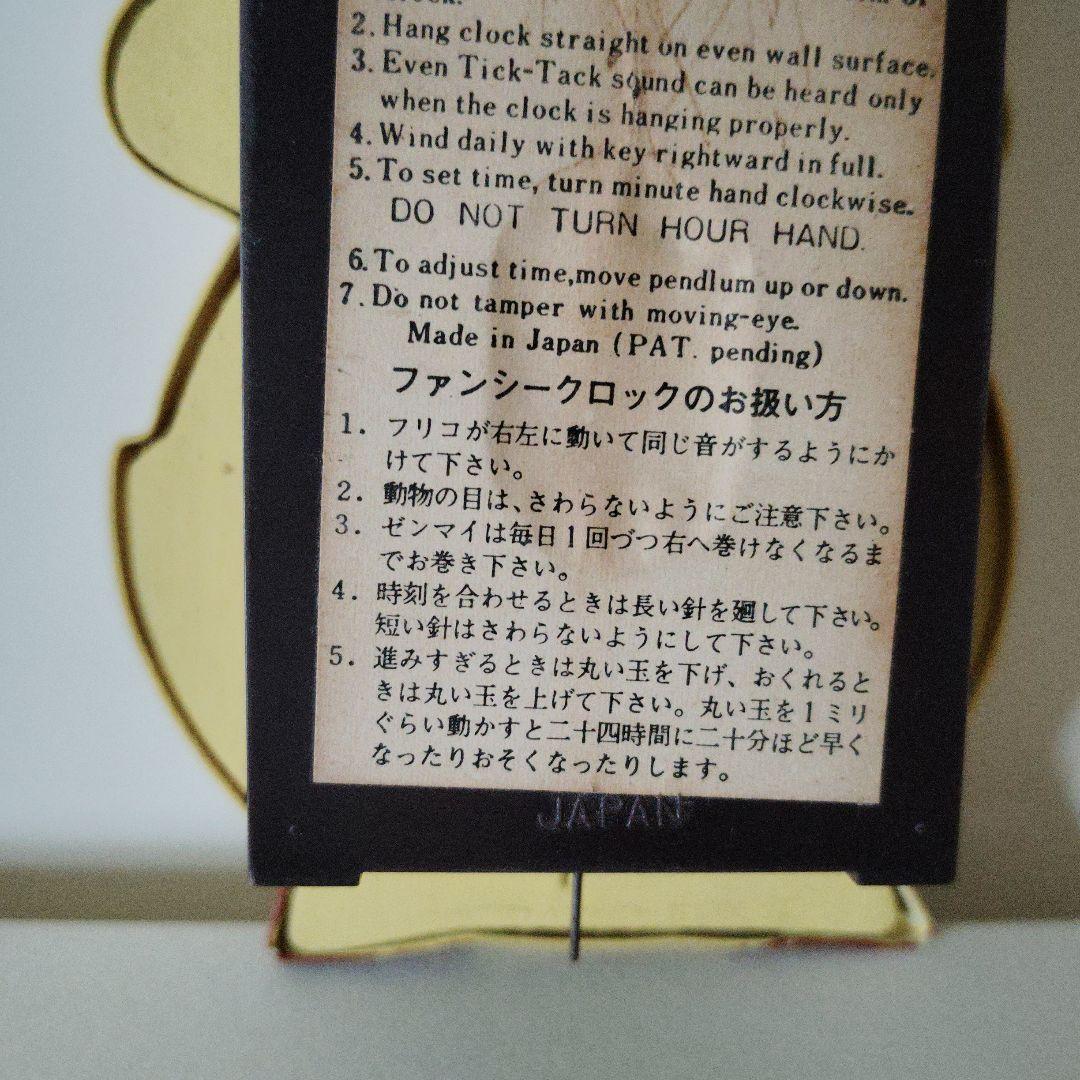 2. Hang clock straight on even wall surface.
3. Even Tick-Tack sound can be heard only
when the clock is hanging properly.
4. Wind daily with key rightward in full.
5. To set time, turn minute hand clockwise.
DO NOT TURN HOUR HAND.
6. To adjust time, move pendlum up or down.
7. Do not tamper with moving-eye.
Made in Japan (PAT. pending)
ファンシークロックのお扱い方
1. フリコが右左に動いて同じ音がするようにか
けて下さい。
2. 動物の目は、さわらないようにご注意下さい。
3. ゼンマイは毎日1回づつ右へ巻けなくなるま
でお巻き下さい。
4. 時刻を合わせるときは長い針を廻して下さい。
短い針はさわらないようにして下さい。
5. 進みすぎるときは丸い玉を下げ、おくれると
きは丸い玉を上げて下さい。丸い玉を1ミリ
ぐらい動かすと二十四時間に二十分ほど早く
なったりおそくなったりします。
JAPAN